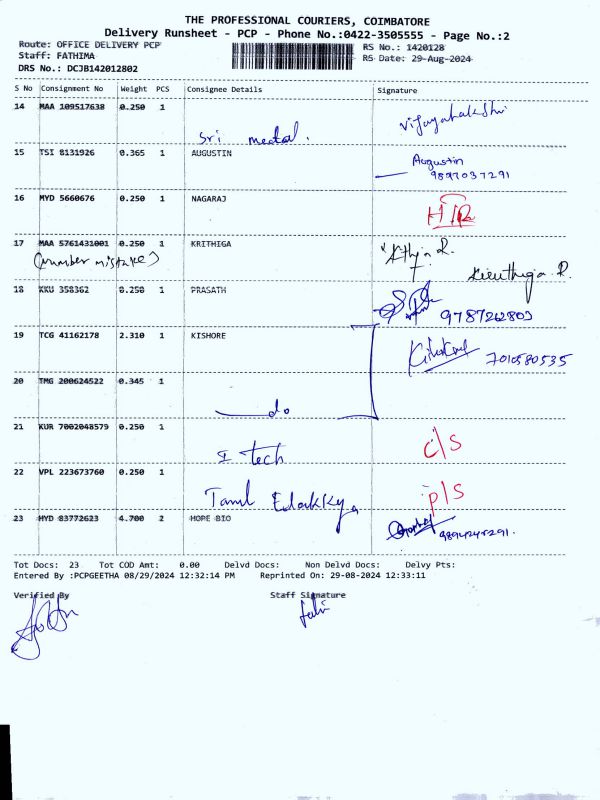 THE PROFESSIONAL COURIERS, COIMBATORE
Delivery Runsheet - PCP - Phone No.:0422-3505555 - Page No.:2
Route: OFFICE DELIVERY PCP RS No.: 1420128
Staff: FATHIMA RS Date: 29-Aug-2024
DRS No.: DCJB142012802
S No Consignment No Weight PCS Consignee Details Signature
14 MAA 109517638 0.250 1
Sri medal.
15 TSI 8131926 0.365 1 AUGUSTIN Augustin
9897037291
16 MYD 5660676 0.250 1 NAGARAJ
17 MAA 5761431001 0.250 1 KRITHIGA
(number mistake) Kiruthiga R.
18 KKU 358362 0.250 1 PRASATH
9787262803
19 TCG 41162178 2.310 1 KISHORE
7010580535
20 TMG 200624522 0.345 1
do
21 KUR 7002048579 0.250 1 C/S
I tech
22 VPL 223673760 0.250 1 P/S
Tamil Elakkya
23 HYD 83772623 4.700 2 HOPE BIO
Tot Docs: 23 Tot COD Amt: 0.00 Delvd Docs: Non Delvd Docs: Delvy Pts:
Entered By :PCPGEETHA 08/29/2024 12:32:14 PM Reprinted On: 29-08-2024 12:33:11
Verified By Staff Signature